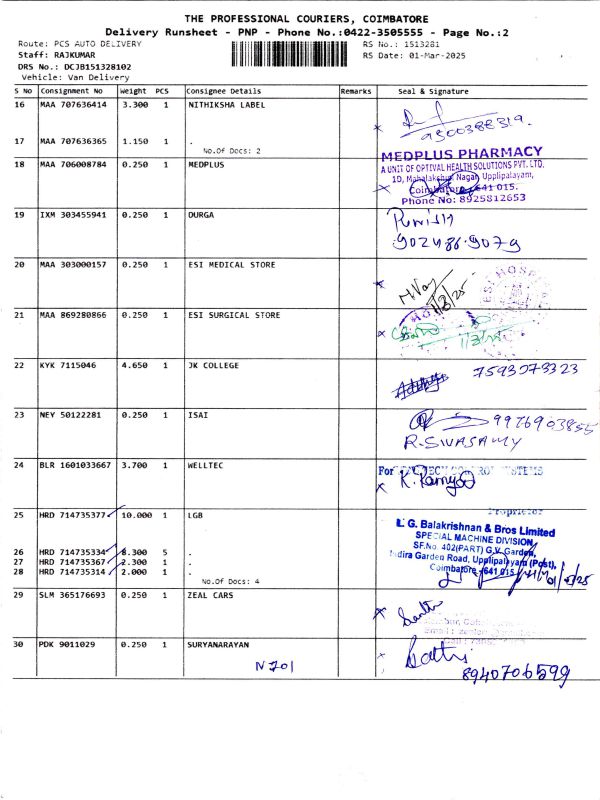 THE PROFESSIONAL COURIERS, COIMBATORE
Delivery Runsheet - PNP - Phone No.:0422-3505555 - Page No.:2
Route: PCS AUTO DELIVERY RS No.: 1513281
Staff: RAJKUMAR RS Date: 01-Mar-2025
DRS No.: DCJB151328102
Vehicle: Van Delivery
S No Consignment No Weight PCS Consignee Details Remarks Seal & Signature
16 MAA 707636414 3.300 1 NITHIKSHA LABEL
9500388319.
17 MAA 707636365 1.150 1 .
No.Of Docs: 2
18 MAA 706008784 0.250 1 MEDPLUS
MEDPLUS PHARMACY
A UNIT OF OPTIVAL HEALTH SOLUTIONS PVT. LTD.
1D, Mahalakshmi Nagar, Upplipalayam,
Coimbatore - 641 015.
Phone No: 8925812653
19 IXM 303455941 0.250 1 DURGA
902486.9079
20 MAA 303000157 0.250 1 ESI MEDICAL STORE
1/3/25
21 MAA 869280866 0.250 1 ESI SURGICAL STORE
22 KYK 7115046 4.650 1 JK COLLEGE
7593073323
23 NEY 50122281 0.250 1 ISAI
9976903855
R.SIVASAMY
24 BLR 1601033667 3.700 1 WELLTEC
For
K. Ramya
Proprietor
25 HRD 714735377 10.000 1 LGB
L. G. Balakrishnan & Bros Limited
SPECIAL MACHINE DIVISION,
SF.No. 402(PART) G.V. Garden,
Indira Garden Road, Upplipalayam (Post),
Coimbatore - 641 015
26 HRD 714735334 8.300 5 .
27 HRD 714735367 2.300 1 .
28 HRD 714735314 2.000 1 .
No.Of Docs: 4
29 SLM 365176693 0.250 1 ZEAL CARS
30 PDK 9011029 0.250 1 SURYANARAYAN
N701
8940706599